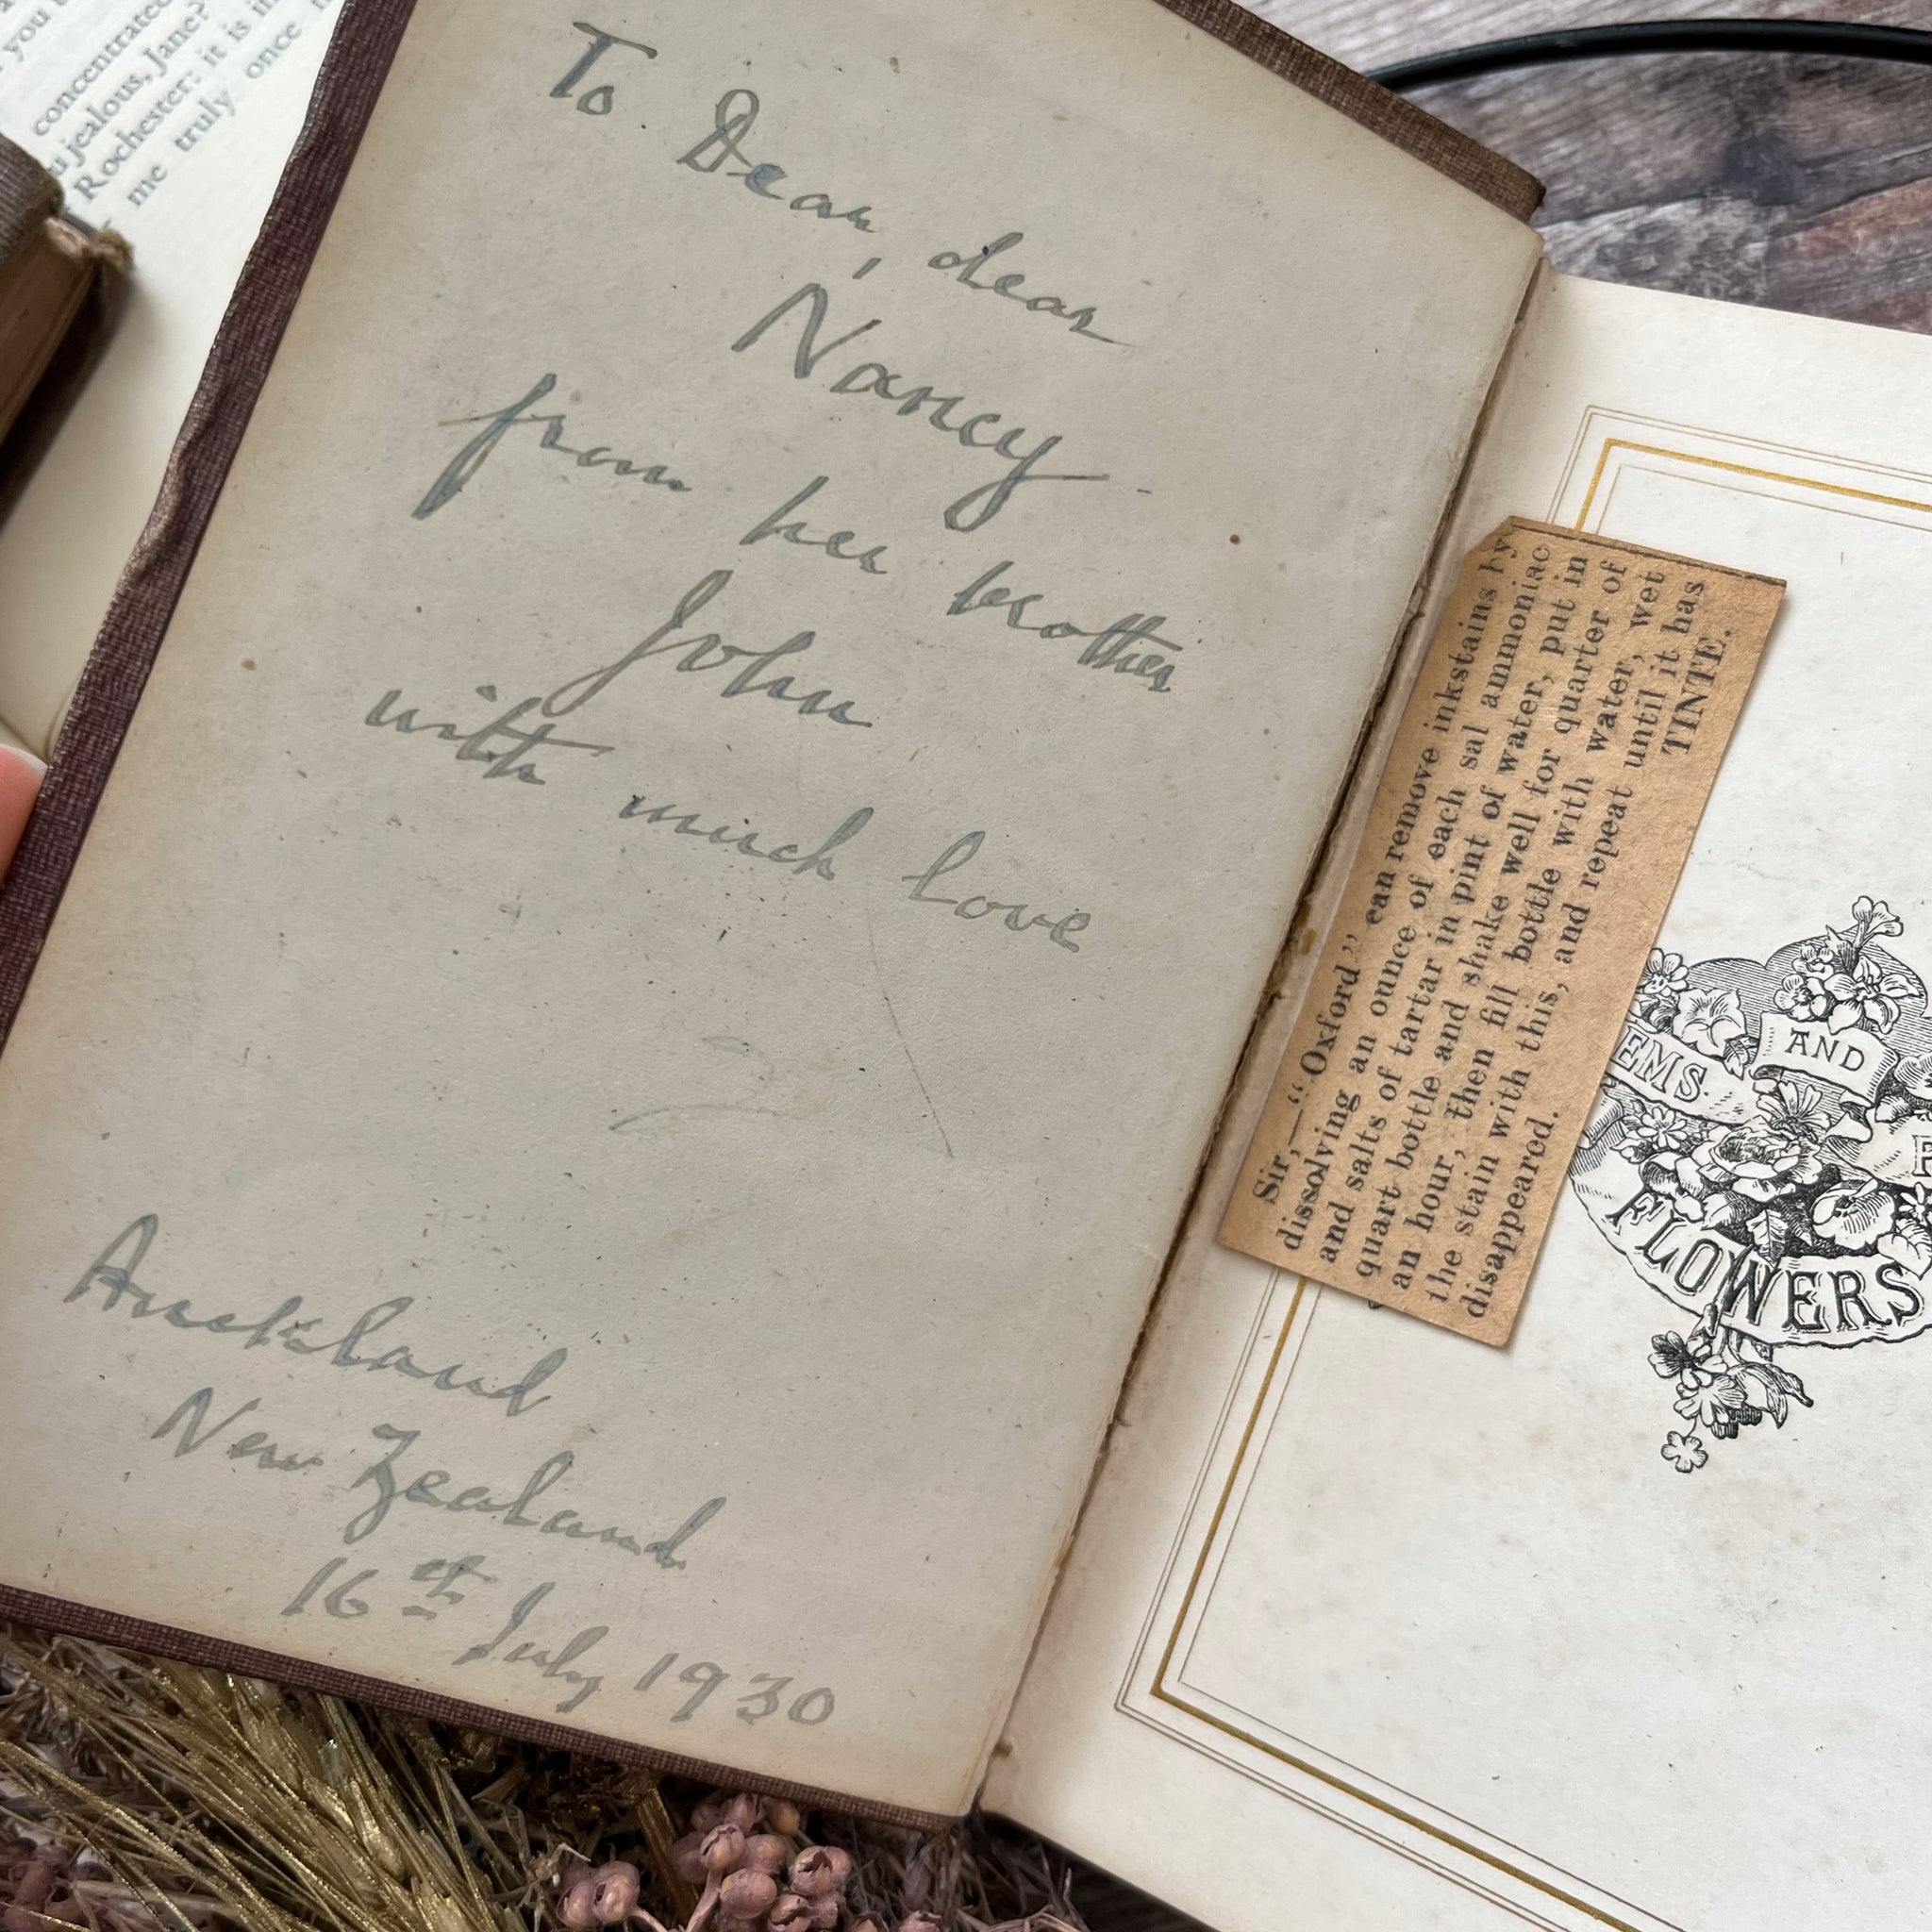 you
concentrated
jealous, Jane?
Rochester: it is
me truly once
To Dear, dear
Nancy
from her brother
John
with much love
Auckland
New Zealand
16th July 1930
Sir,—“Oxford” can remove inkstains by
dissolving an ounce of each sal ammoniac
and salts of tartar in pint of water, put in
quart bottle and shake well for quarter of
an hour, then fill bottle with water, wet
the stain with this, and repeat until it has
disappeared. TINTE.
EMS
AND
FLOWERS